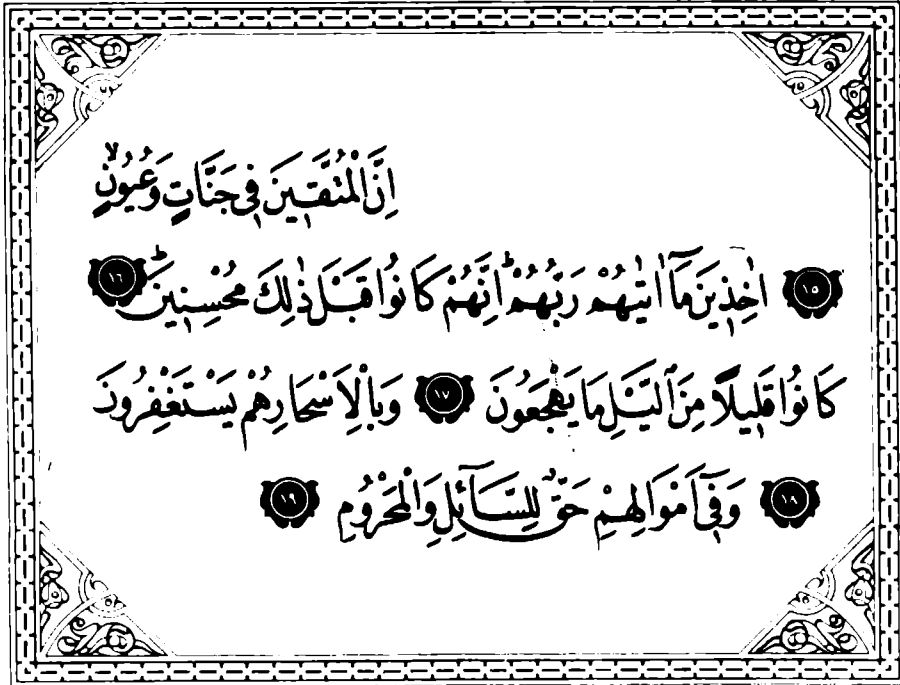 اِنَّ الْمُتَّقٖينَ فٖي جَنَّاتٍ وَعُيُونٍۙ
﴿١٥﴾ اٰخِذٖينَ مَٓا اٰتٰيهُمْ رَبُّهُمْۜ اِنَّهُمْ كَانُوا قَبْلَ ذٰلِكَ مُحْسِنٖينَۜ ﴿١٦﴾
كَانُوا قَلٖيلًا مِنَ الَّيْلِ مَا يَهْجَعُونَ ﴿١٧﴾ وَبِالْاَسْحَارِ هُمْ يَسْتَغْفِرُونَ
﴿١٨﴾ وَفٖٓي اَمْوَالِهِمْ حَقٌّ لِلسَّٓائِلِ وَالْمَحْرُومِ ﴿١٩﴾